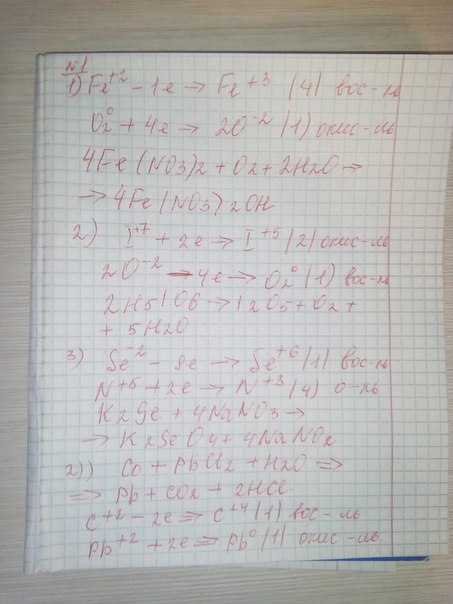 N1
1) Fe+2 - 1e → Fe+3 |4| вос-ль
O2^0 + 4e → 2O-2 |1| окис-ль
4Fe(NO3)2 + O2 + 2H2O →
→ 4Fe(NO3)2OH
2) I+7 + 2e → I+5 |2| окис-ль
2O-2 - 4e → O2^0 |1| вос-ль
2H5IO6 → I2O5 + O2 +
+ 5H2O
3) Se-2 - 8e → Se+6 |1| вос-ль
N+5 + 2e → N+3 |4| о-ль
K2Se + 4NaNO3 →
→ K2SeO4 + 4NaNO2
2)) CO + PbCl2 + H2O ⇒
⇒ Pb + CO2 + 2HCl
C+2 - 2e ⇒ C+4 |1| вос-ль
Pb+2 + 2e ⇒ Pb^0 |1| окис-ль